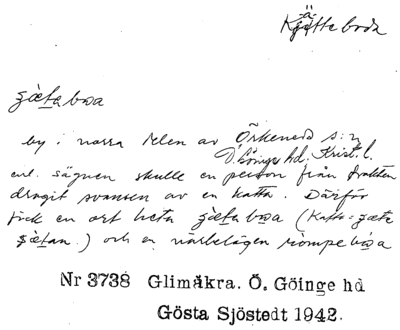 Kjätteboda
by i norra delen av Örkeneds s:n
Ö. Göinge hd. Krist. l.
enl. sägnen skulle en person från trakten
dragit svansen av en katta. Därför
fick en ort heta
och en närbelägen
Nr 3738 Glimåkra. Ö. Göinge hd
Gösta Sjöstedt 1942.